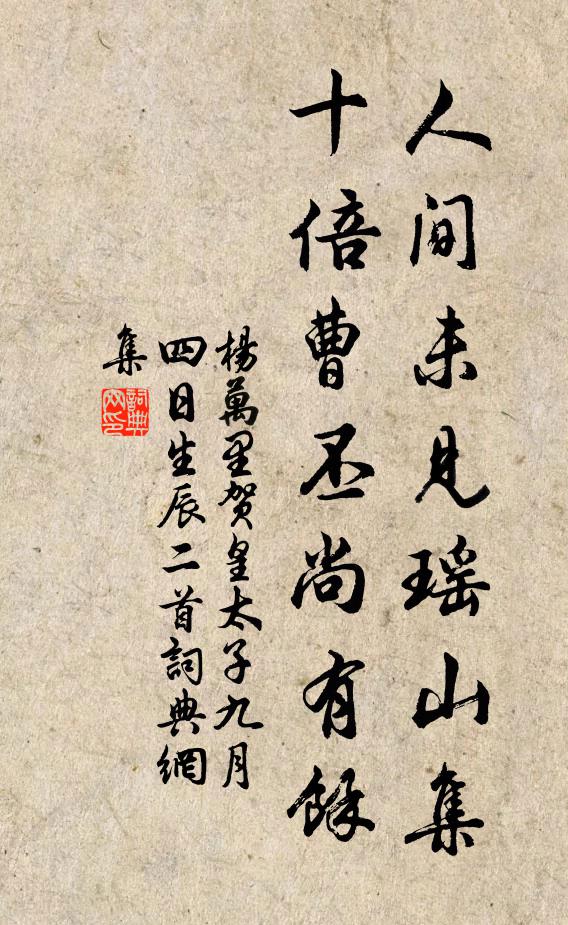 人间未見瑶山集
十倍曹丕尚有餘
楊萬里贺皇太子九月
四日生辰二首詞典網
集
詞典
网印